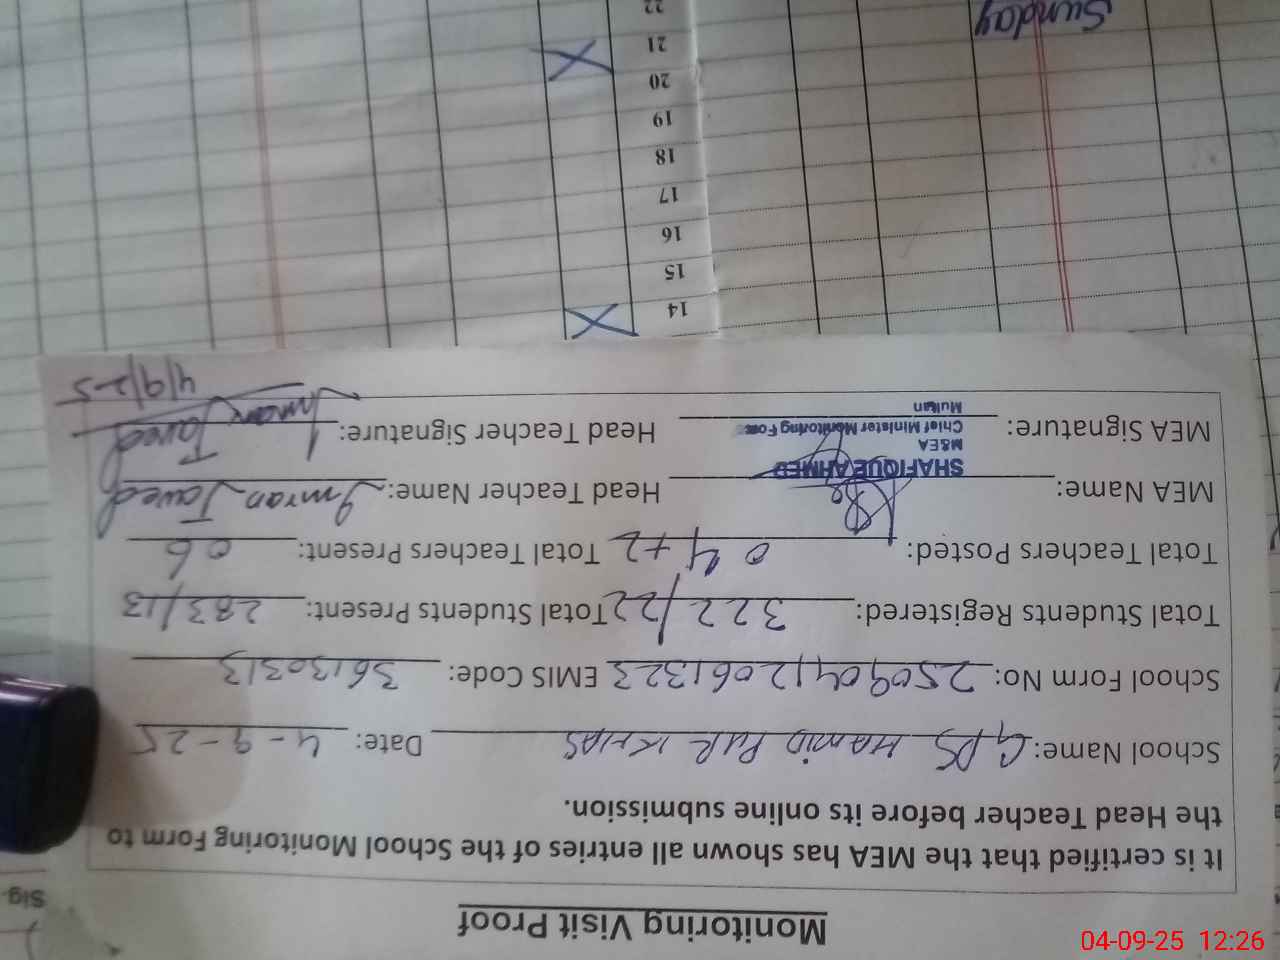 Monitoring Visit Proof
It is certified that the MEA has shown all entries of the School Monitoring Form to
the Head Teacher before its online submission.
School Name: GPS HAMID PUR KHAS Date: 4-9-25
School Form No: 25090412061323 EMIS Code: 36130313
Total Students Registered: 322/22 Total Students Present: 283/13
Total Teachers Posted: 04+2 Total Teachers Present: 06
MEA Name: Head Teacher Name: Imran Javed
SHAFIQUE AHMED
M&EA
Chief Minister Monitoring Force
Multan
MEA Signature: Head Teacher Signature: Imran Javed
4/9/25
14
15
16
17
18
19
20
21
22
Sunday
Sig.
04-09-25 12:26